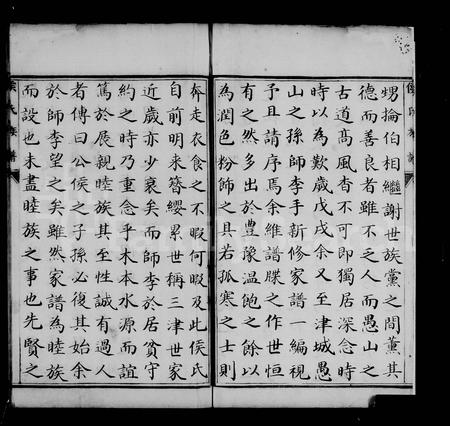 甥掄伯相繼謝世族黨之間薰其
德而善良者雖不乏人而愚山之
古道高風杳不可即獨居深念時
時以為歎歲戊戌余又至津城愚
山之孫師李手新修家譜一編視
予且請序焉余維譜牒之作世恒
有之然多出於豊豫溫飽之餘以
為潤色粉飾之具若孤寒之士則
奔走衣食之不暇何暇及此侯氏
自前明來簪纓累世稱三津世家
近歲亦少衰矣而師李於居貧守
約之時乃重念乎木本水源而誼
篤於展親睦族其至性誠有過人
者傳曰公侯之子孫必復其始余
於師李望之矣雖然家譜為睦族
而設也未盡睦族之事也先賢之
侯氏族譜